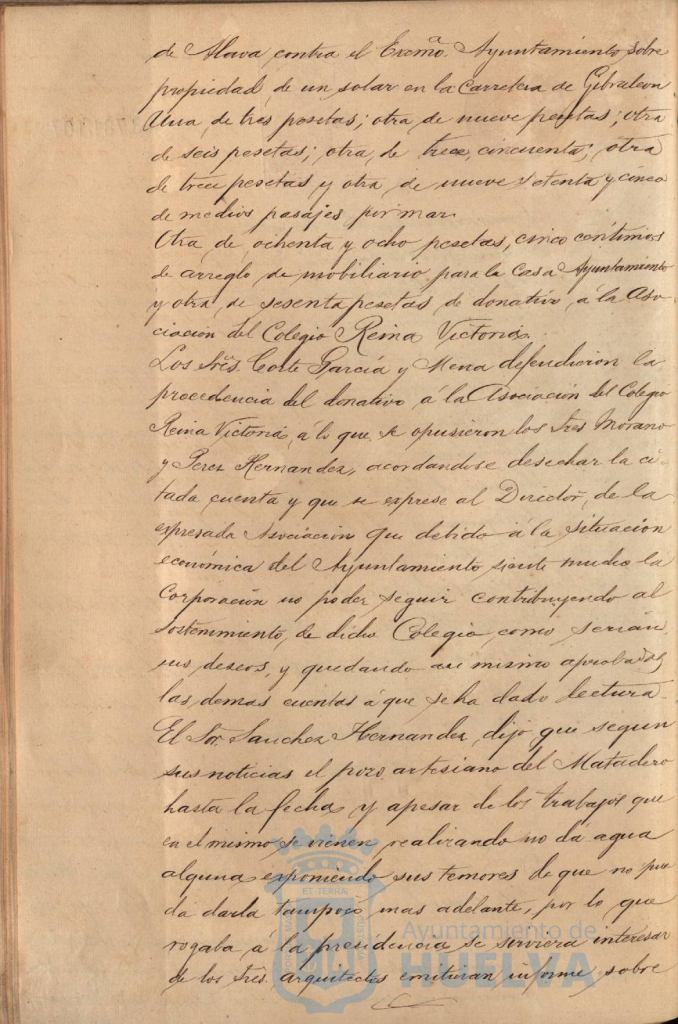 de Alava contra el Excmo. Ayuntamiento sobre
propiedad de un solar en la Carretera de Gibraleon
Una de tres pesetas; otra de nueve pesetas; otra
de seis pesetas; otra, de trece, cincuenta; otra
de trece pesetas y otra de nueve setenta y cinco
de medios pasajes por mar.
Otra de ochenta y ocho pesetas, cinco centimos
de arreglo de mobiliario para la Casa Ayuntamiento
y otra, de sesenta pesetas de donativo á la Aso-
ciación del Colegio Reina Victoria.
Los Sres. Corte García y Mena defendieron la
procedencia del donativo á la Asociación del Colegio
Reina Victoria, á lo que se opusieron los Sres Morano
y Perez Hernandez, acordandose desechar la ci-
tada cuenta y que se exprese al Director, de la
expresada Asociación que debido á la situación
económica del Ayuntamiento siente mucho la
Corporación no poder seguir contribuyendo al
sostenimiento, de dicho Colegio como serían
sus deseos, y quedando asi mismo aprobadas
las demas cuentas á que se ha dado lectura.
El Sor. Sanchez Hernandez, dijo que segun
sus noticias el pozo artesiano del Matadero
hasta la fecha y apesar de los trabajos que
en el mismo se vienen realizando no da agua
alguna exponiendo sus temores de que no pue
da darla tampoco mas adelante, por lo que
rogaba á la presidencia se serviera interesar
de los Sres. arquitectos emitieran informe sobre
ET TERRÆ
Ayuntamiento de
HUELVA